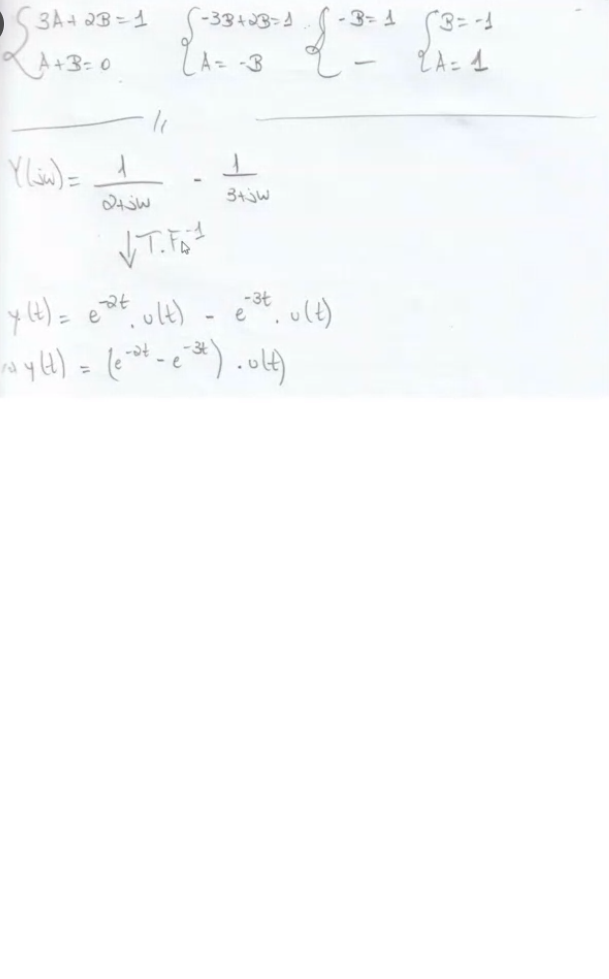 { 3A + 2B = 1 { -3B + 2B = 1 { -B = 1 { B = -1
A + B = 0 A = -B — A = 1
Y(jw) = 1/(2+jw) - 1/(3+jw)
↓ T.F^-1
y(t) = e^-2t . u(t) - e^-3t . u(t)
y(t) = (e^-2t - e^-3t) . u(t)